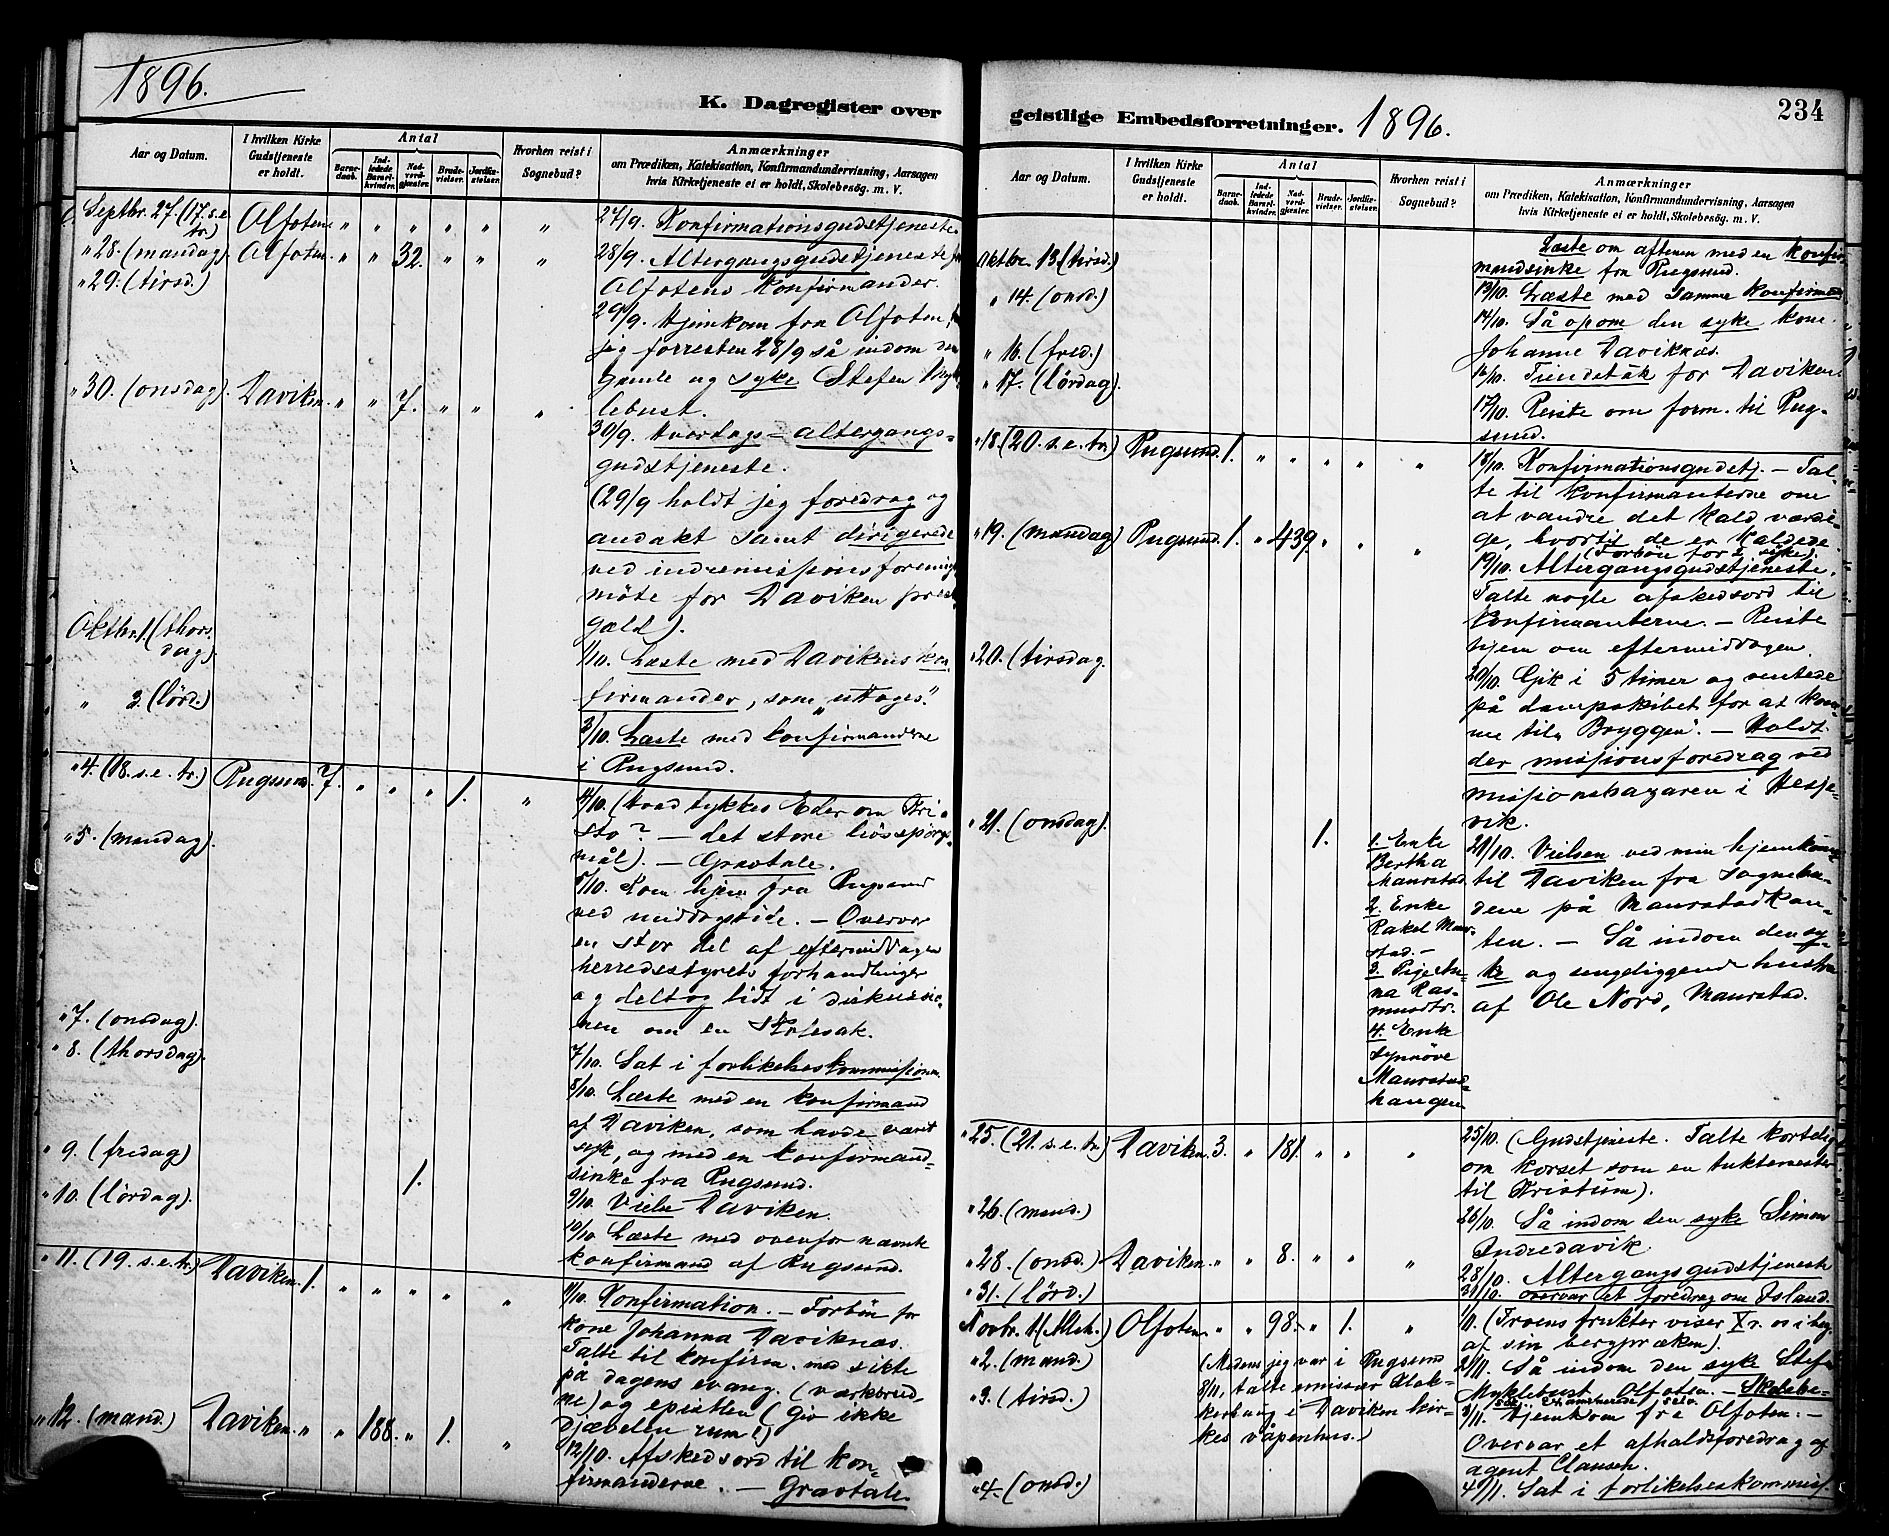 1896.
K. Dagregister over
Aar og Datum.
I hvilken Kirke
Gudstjeneste
er holdt.
Antal
Barne-
daab.
Ind-
ledede
Barsel-
kvinder.
Nad-
verd-
gjester.
Brude-
vielser.
Jordfæ-
stelser.
Hvorhen reist i
Sognebud?
Anmærkninger
om Prædiken, Katekisation, Konfirmandundervisning, Aarsagen
hvis Kirketjeneste ei er holdt, Skolebesøg. m. V.
Septbr. 27. (17. s. e. tr.) Alfoten " " " " " "
27/9. Konfirmationsgudstjeneste
" 28. (mandag). Alfoten. " " 32. " " "
28/9. Altergangsgudstjeneste for
" 29. (tirsd.)
Alfotens konfirmander.
29/9. Hjemkom fra Alfoten,
jeg forresten 28/9 så indom den
gamle og syke Stefen Myk-
lebust.
" 30. (onsdag). Daviken. " " 7. " " "
30/9. Hverdags-altergangs-
gudstjeneste.
(29/9 holdt jeg foredrag og
andakt samt dirigerede
ved indremissjonsforenings
møte for Daviken præst-
gæld).
Oktbr. 1. (thors-
dag)
1/10. Læste med Davikens kon-
firmander, som "uttages".
" 3. (lørd.)
3/10. Læste med konfirmanderne
i Rugsund.
" 4. (18. s. e. tr.) Rugsund. 7. " " " 1. "
4/10. (Hvad tykkes Eder om Kri-
sto? – det store livsspørgs-
mål). – Gravtale.
" 5. (mandag).
5/10. Kom hjem fra Rugsund
ved middagstide. – Overvar
en stor del af eftermiddagen
herredsstyrets forhandlinger
og deltog lidt i diskussio-
nen om en skolesak.
" 7. (onsdag).
7/10. Sat i forlikelseskommissionen.
" 8. (thorsdag).
8/10. Læste med en konfirmand
af Daviken, som havde været
syk, og med en konfirmand-
sinke fra Rugsund.
" 9. (fredag) 1.
9/10. Vielse Daviken.
" 10. (lørdag).
10/10. Læste med ovenfor nævnte
konfirmand af Rugsund.
" 11. (19. s. e. tr.) Daviken. 1. " " " " "
11/10. Konfirmation. – Forbøn for
kone Johanna Daviknæs.
Talte til konfirm. med sikte
på dagens evang. (værkbrud-
ne) og epistlen (Giv ikke
djæbelen rum!)
" 12. (mand.) Daviken. " " 188. " 1. "
12/10. Afskedsord til kon-
firmanderne. – Gravtale.
geistlige Embedsforretninger. 1896.
234
Aar og Datum.
I hvilken Kirke
Gudstjeneste
er holdt.
Antal
Barne-
daab.
Ind-
ledede
Barsel-
kvinder.
Nad-
verd-
gjester.
Brude-
vielser.
Jordfæ-
stelser.
Hvorhen reist i
Sognebud?
Anmærkninger
om Prædiken, Katekisation, Konfirmandundervisning, Aarsagen
hvis Kirketjeneste ei er holdt, Skolebesøg. m. V.
Læste om aftenen med en konfir-
mandsinke fra Rugsund.
Oktbr. 13 (tirsd.)
13/10. Læste med samme konfirmand
" 14. (onsd.)
14/10. Så op om den syke kone
Johanne Daviknæs.
" 16. (fred.)
16/10. Tiendetåk for Daviken.
" 17. (lørdag).
17/10. Reiste om form. til Rug-
sund.
" 18. (20. s. e. tr.) Rugsund. 1. " " " " "
18/10. Konfirmationsgudstj. – Tal-
te til konfirmanterne om
at vandre det kald værdi-
ge, hvortil de er kaldede.
(Forbøn for 2 syke).
" 19. (mandag) Rugsund. 1. " 439. " " "
19/10. Altergangsgudstjeneste.
Talte nogle afskedsord til
konfirmanterne. – Reiste
hjem om eftermiddagen.
" 20. (tirsdag.
20/10. Gik i 5 timer og ventede
på dampskibet for at kom-
me til "Bryggen". – Holdt
der missjonsforedrag ved
missionsbazaren i Hesje-
vik.
" 21. (onsdag). 1.
1. Enke
Bertha
Maurstad.
2. Enke
Rakel Maur-
stad. –
3. Pige An-
na Ras-
musdtr.
4. Enke
Synnøve
Maurstad-
haugen
21/10. Vielsen ved min hjemkomst
til Daviken fra sognebu-
dene på Maurstadkan-
ten. – Så indom den sy-
ke og sengeliggende hustru
af Ole Nord, Maurstad.
" 25. (21. s. e. tr.) Daviken 3. " 181. " " "
25/10. (Gudstjeneste. Talte kortelig
om korset som en tuktemester
til Kristum).
" 26. (mand.)
26/10. Så indom den syke Simon
Indredavik.
" 28. (onsd.) Daviken " " 8. " " "
28/10. Altergangsgudstjeneste
" 31. (lørd.)
31/10. overvar et foredrag om Island.
Novbr. 1 (Alleh.) Alfoten. " " 98. " 1. "
1/11. (Troens frukter viser Xr. os i beg.
af sin bergpræken).
" 2. (mand.)
2/11. Så indom den syke Stefen
Myklebust Alfoten. – Skolebe-
søg.
" 3. (tirsd.)
3/11. Hjemkom fra Alfoten. –
Overvar et afholdsforedrag af
agent Clausen.
(Medens jeg var i Rugsund
8/11, talte emissær Klok-
kerhaug i Daviken kir-
kes våpenhus.)
" 4. (onsd.)
4/11. Sat i forlikelseskommiss.